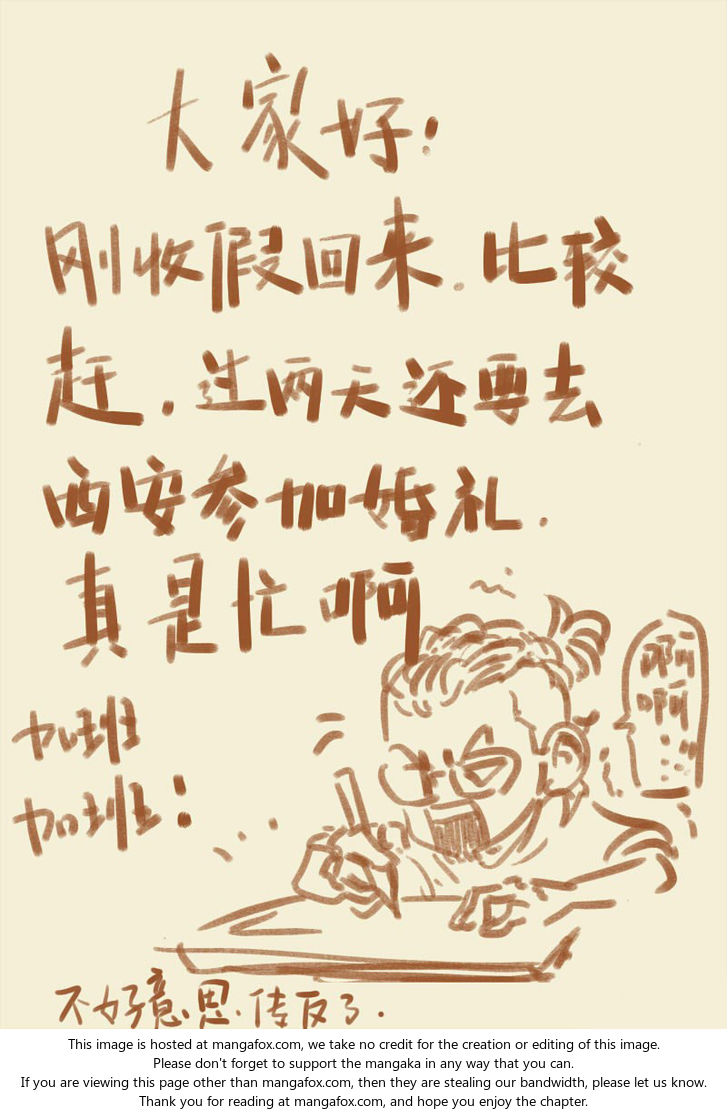 大家好!
刚收假回来.比较
赶,过两天还要去
西安参加婚礼.
真是忙啊
啊啊
啊啊
加班
加班:
不好意思.传反了.
This image is hosted at mangafox.com, we take no credit for the creation or editing of this image.
Please don't forget to support the mangaka in any way that you can.
If you are viewing this page other than mangafox.com, then they are stealing our bandwidth, please let us know.
Thank you for reading at mangafox.com, and hope you enjoy the chapter.